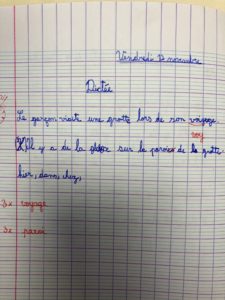 Vendredi 17 novembre
Dictée
Le garçon visite une grotte lors de son voyage
voy
Il y a de la glace sur la paroie de la grotte
hier, dans, chez,
3x voyage
3x paroi